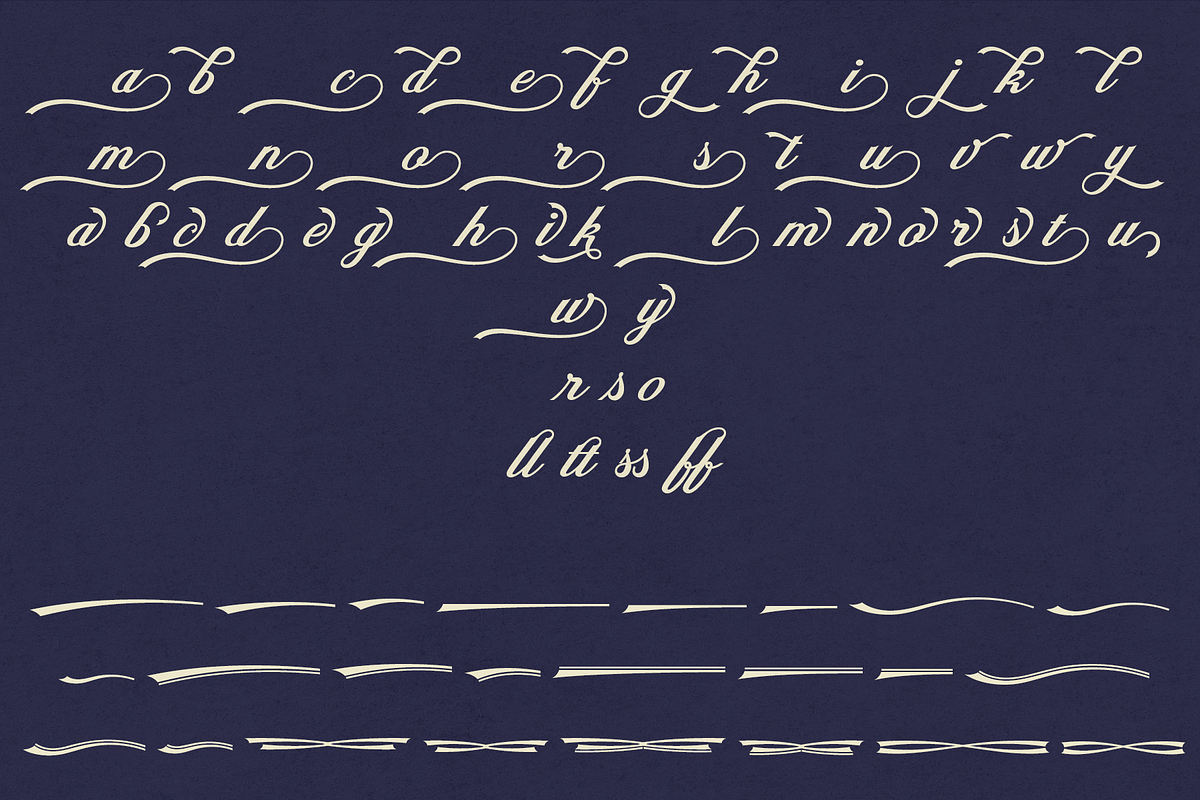 a b c d e f g h i j k l
m n o r s t u v w y
a b c d e g h i k l m n o r s t u
w y
r s o
ll tt ss ff